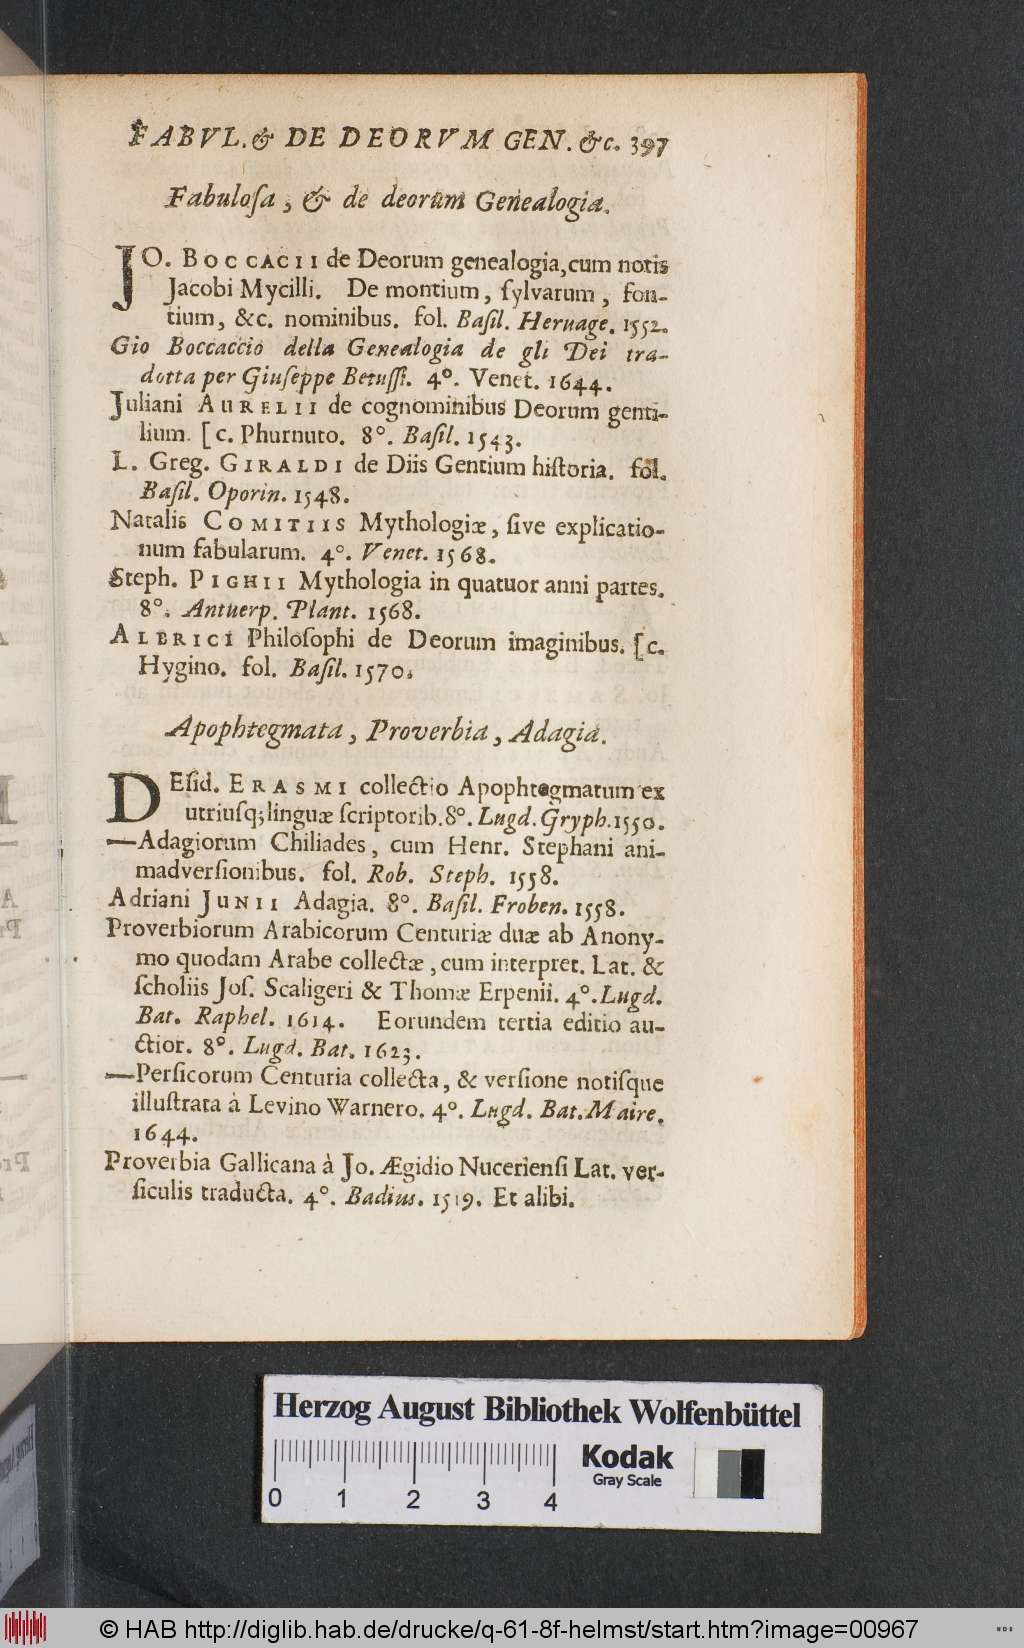 FABVL. & DE DEORVM GEN. &c. 397
Fabuloſa, & de deorum Genealogia.
JO. BOCCACII de Deorum genealogia, cum notis
Jacobi Mycilli. De montium, ſylvarum, fon-
tium, &c. nominibus. fol. Baſil. Heruage. 1552.
Gio Boccaccio della Genealogia de gli Dei tra-
dotta per Giuſeppe Betuſſi. 4°. Venet. 1644.
Juliani AURELII de cognominibus Deorum genti-
lium. [c. Phurnuto. 8°. Baſil. 1543.
L. Greg. GIRALDI de Diis Gentium hiſtoria. fol.
Baſil. Oporin. 1548.
Natalis COMITIIS Mythologiæ, ſive explicatio-
num fabularum. 4°. Venet. 1568.
Steph. PIGHII Mythologia in quatuor anni partes.
8°. Antuerp. Plant. 1568.
ALBRICI Philoſophi de Deorum imaginibus. [c.
Hygino. fol. Baſil. 1570.
Apophtegmata, Proverbia, Adagia.
DEſid. ERASMI collectio Apophtegmatum ex
utriuſq; linguæ ſcriptorib. 8°. Lugd. Gryph. 1550.
—Adagiorum Chiliades, cum Henr. Stephani ani-
madverſionibus. fol. Rob. Steph. 1558.
Adriani JUNII Adagia. 8°. Baſil. Froben. 1558.
Proverbiorum Arabicorum Centuriæ duæ ab Anony-
mo quodam Arabe collectæ, cum interpret. Lat. &
ſcholiis Joſ. Scaligeri & Thomæ Erpenii. 4°. Lugd.
Bat. Raphel. 1614. Eorundem tertia editio au-
ctior. 8°. Lugd. Bat. 1623.
—Perſicorum Centuria collecta, & verſione notiſque
illuſtrata à Levino Warnero. 4°. Lugd. Bat. Maire.
1644.
Proverbia Gallicana à Jo. Ægidio Nucerienſi Lat. ver-
ſiculis traducta. 4°. Badius. 1519. Et alibi.
Herzog August Bibliothek Wolfenbüttel
Kodak
Gray Scale
0 1 2 3 4
© HAB http://diglib.hab.de/drucke/q-61-8f-helmst/start.htm?image=00967